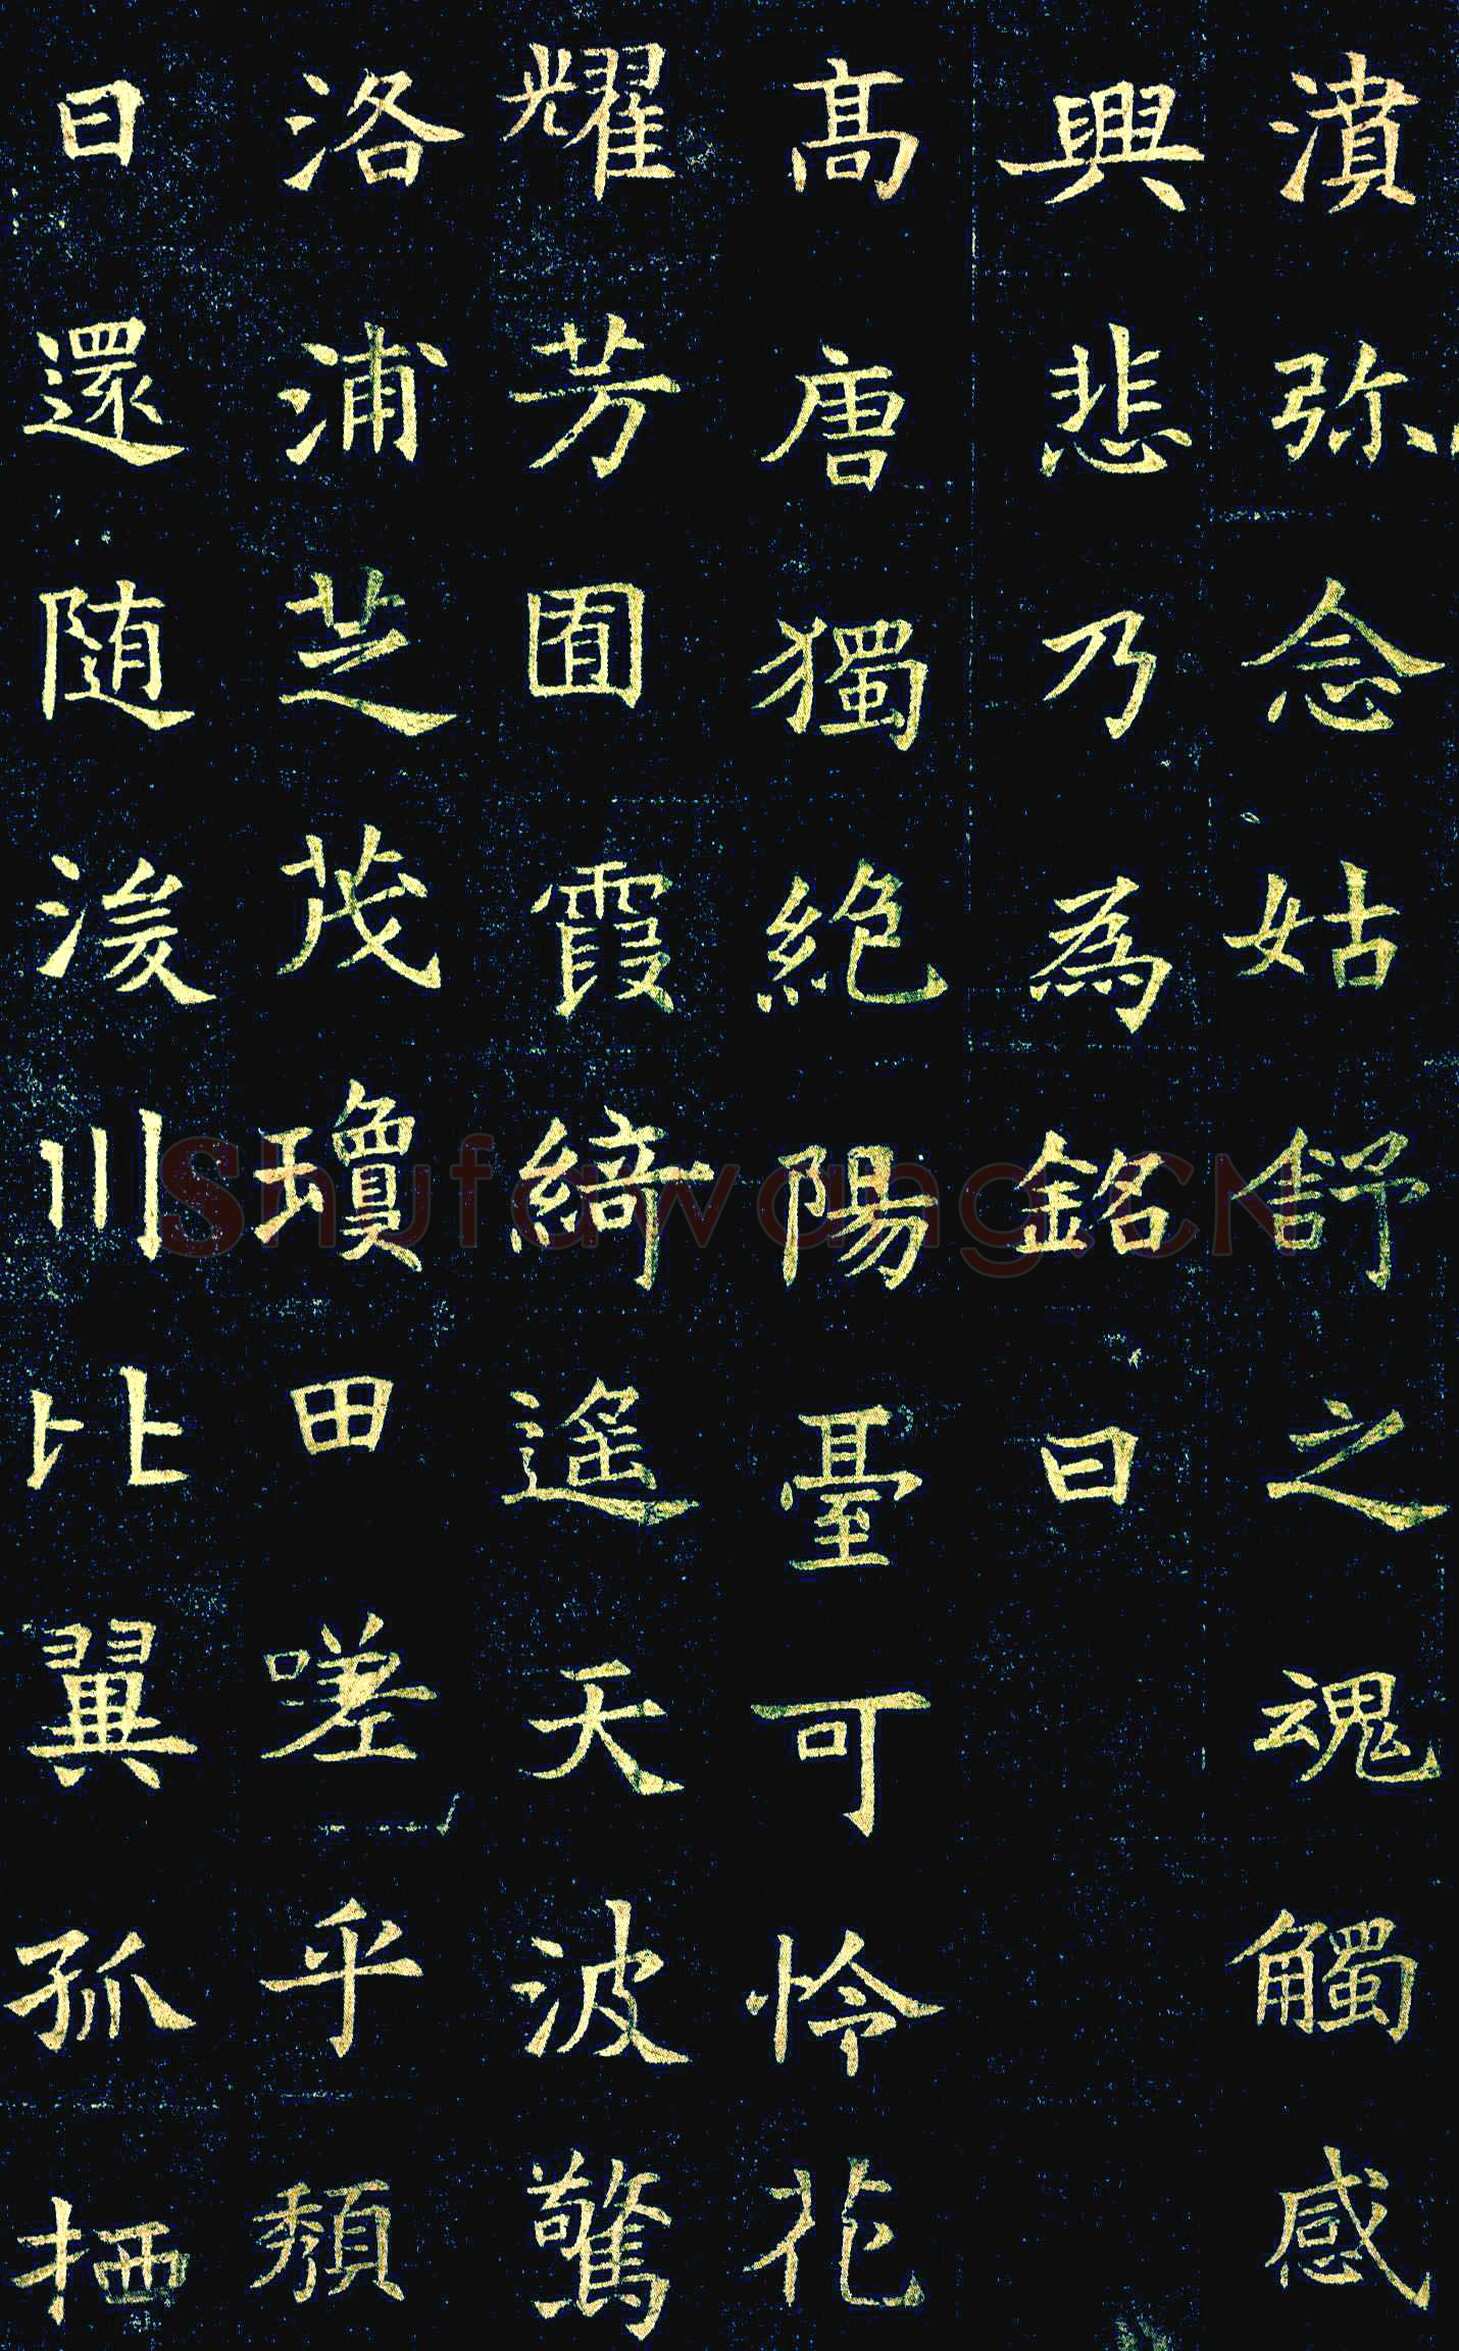 濆弥念姑舒之魂觸感
興悲乃為銘曰
高唐獨絶陽臺可怜花
耀芳囿霞綺遥天波驚
洛浦芝茂瓊田嗟乎頽
日還随浚川比翼孤栖
Shufawang.CN